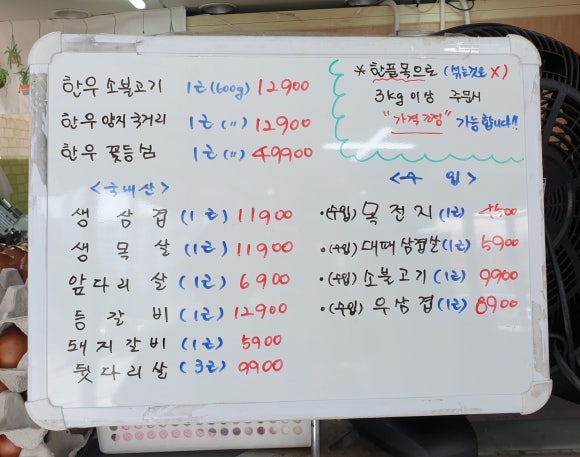 한우 소불고기 1근(600g) 12900
한우 양지 국거리 1근(〃) 12900
한우 꽃등심 1근(〃) 49900
* 한품목으로 (섞는것도 X)
3kg 이상 주문시
"가격 조정" 가능합니다!!
<국내산>
생 삼 겹 (1근) 11900
생 목 살 (1근) 11900
앞다리 살 (1근) 6900
등 갈 비 (1근) 12900
돼지갈비 (1근) 5900
뒷다리살 (3근) 9900
<수 입>
•(수입) 목전지 (1근) 4500
•(수입) 대패삼겹살 (1근) 5900
•(수입) 소불고기 (1근) 9900
•(수입) 우삼겹 (1근) 8900